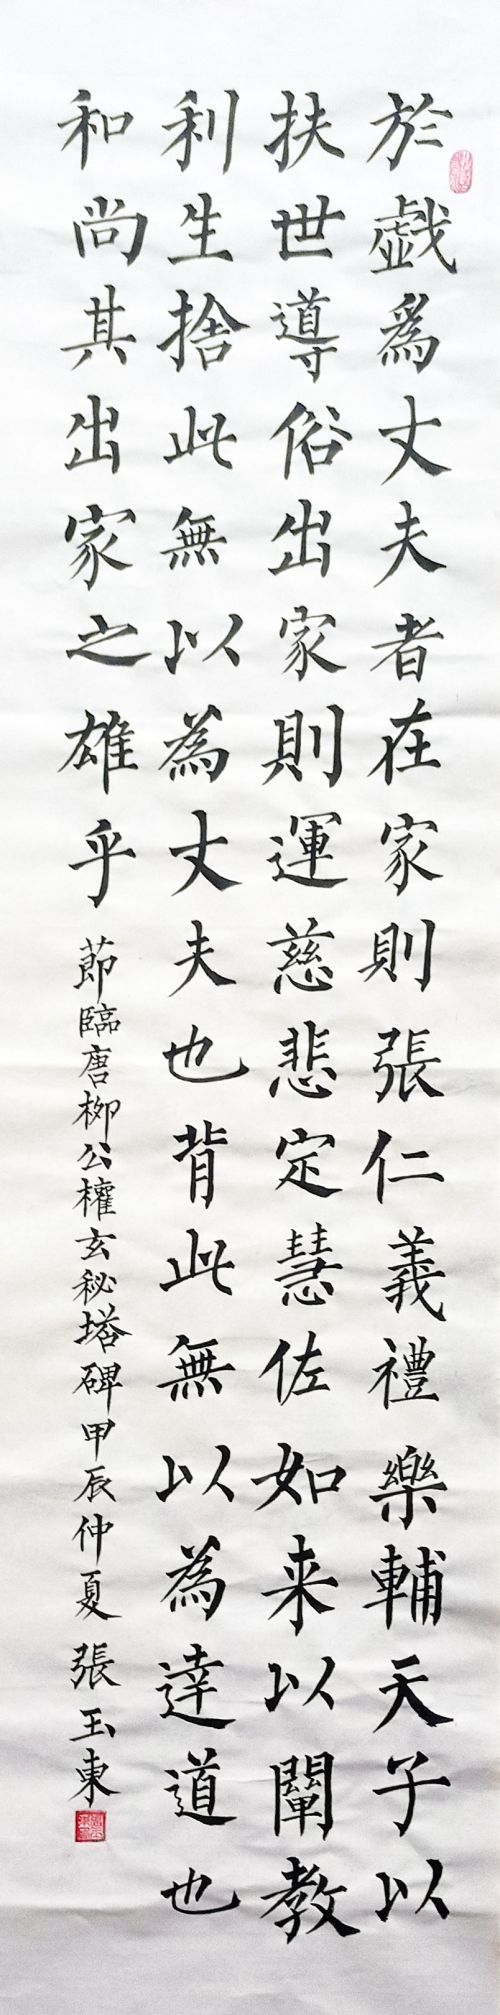 於戱為丈夫者在家則張仁義禮樂輔天子以
扶世導俗出家則運慈悲定慧佐如来以闡教
利生捨此無以為丈夫也背此無以為達道也
和尚其出家之雄乎 節臨唐柳公權玄秘塔碑甲辰仲夏 張玉東